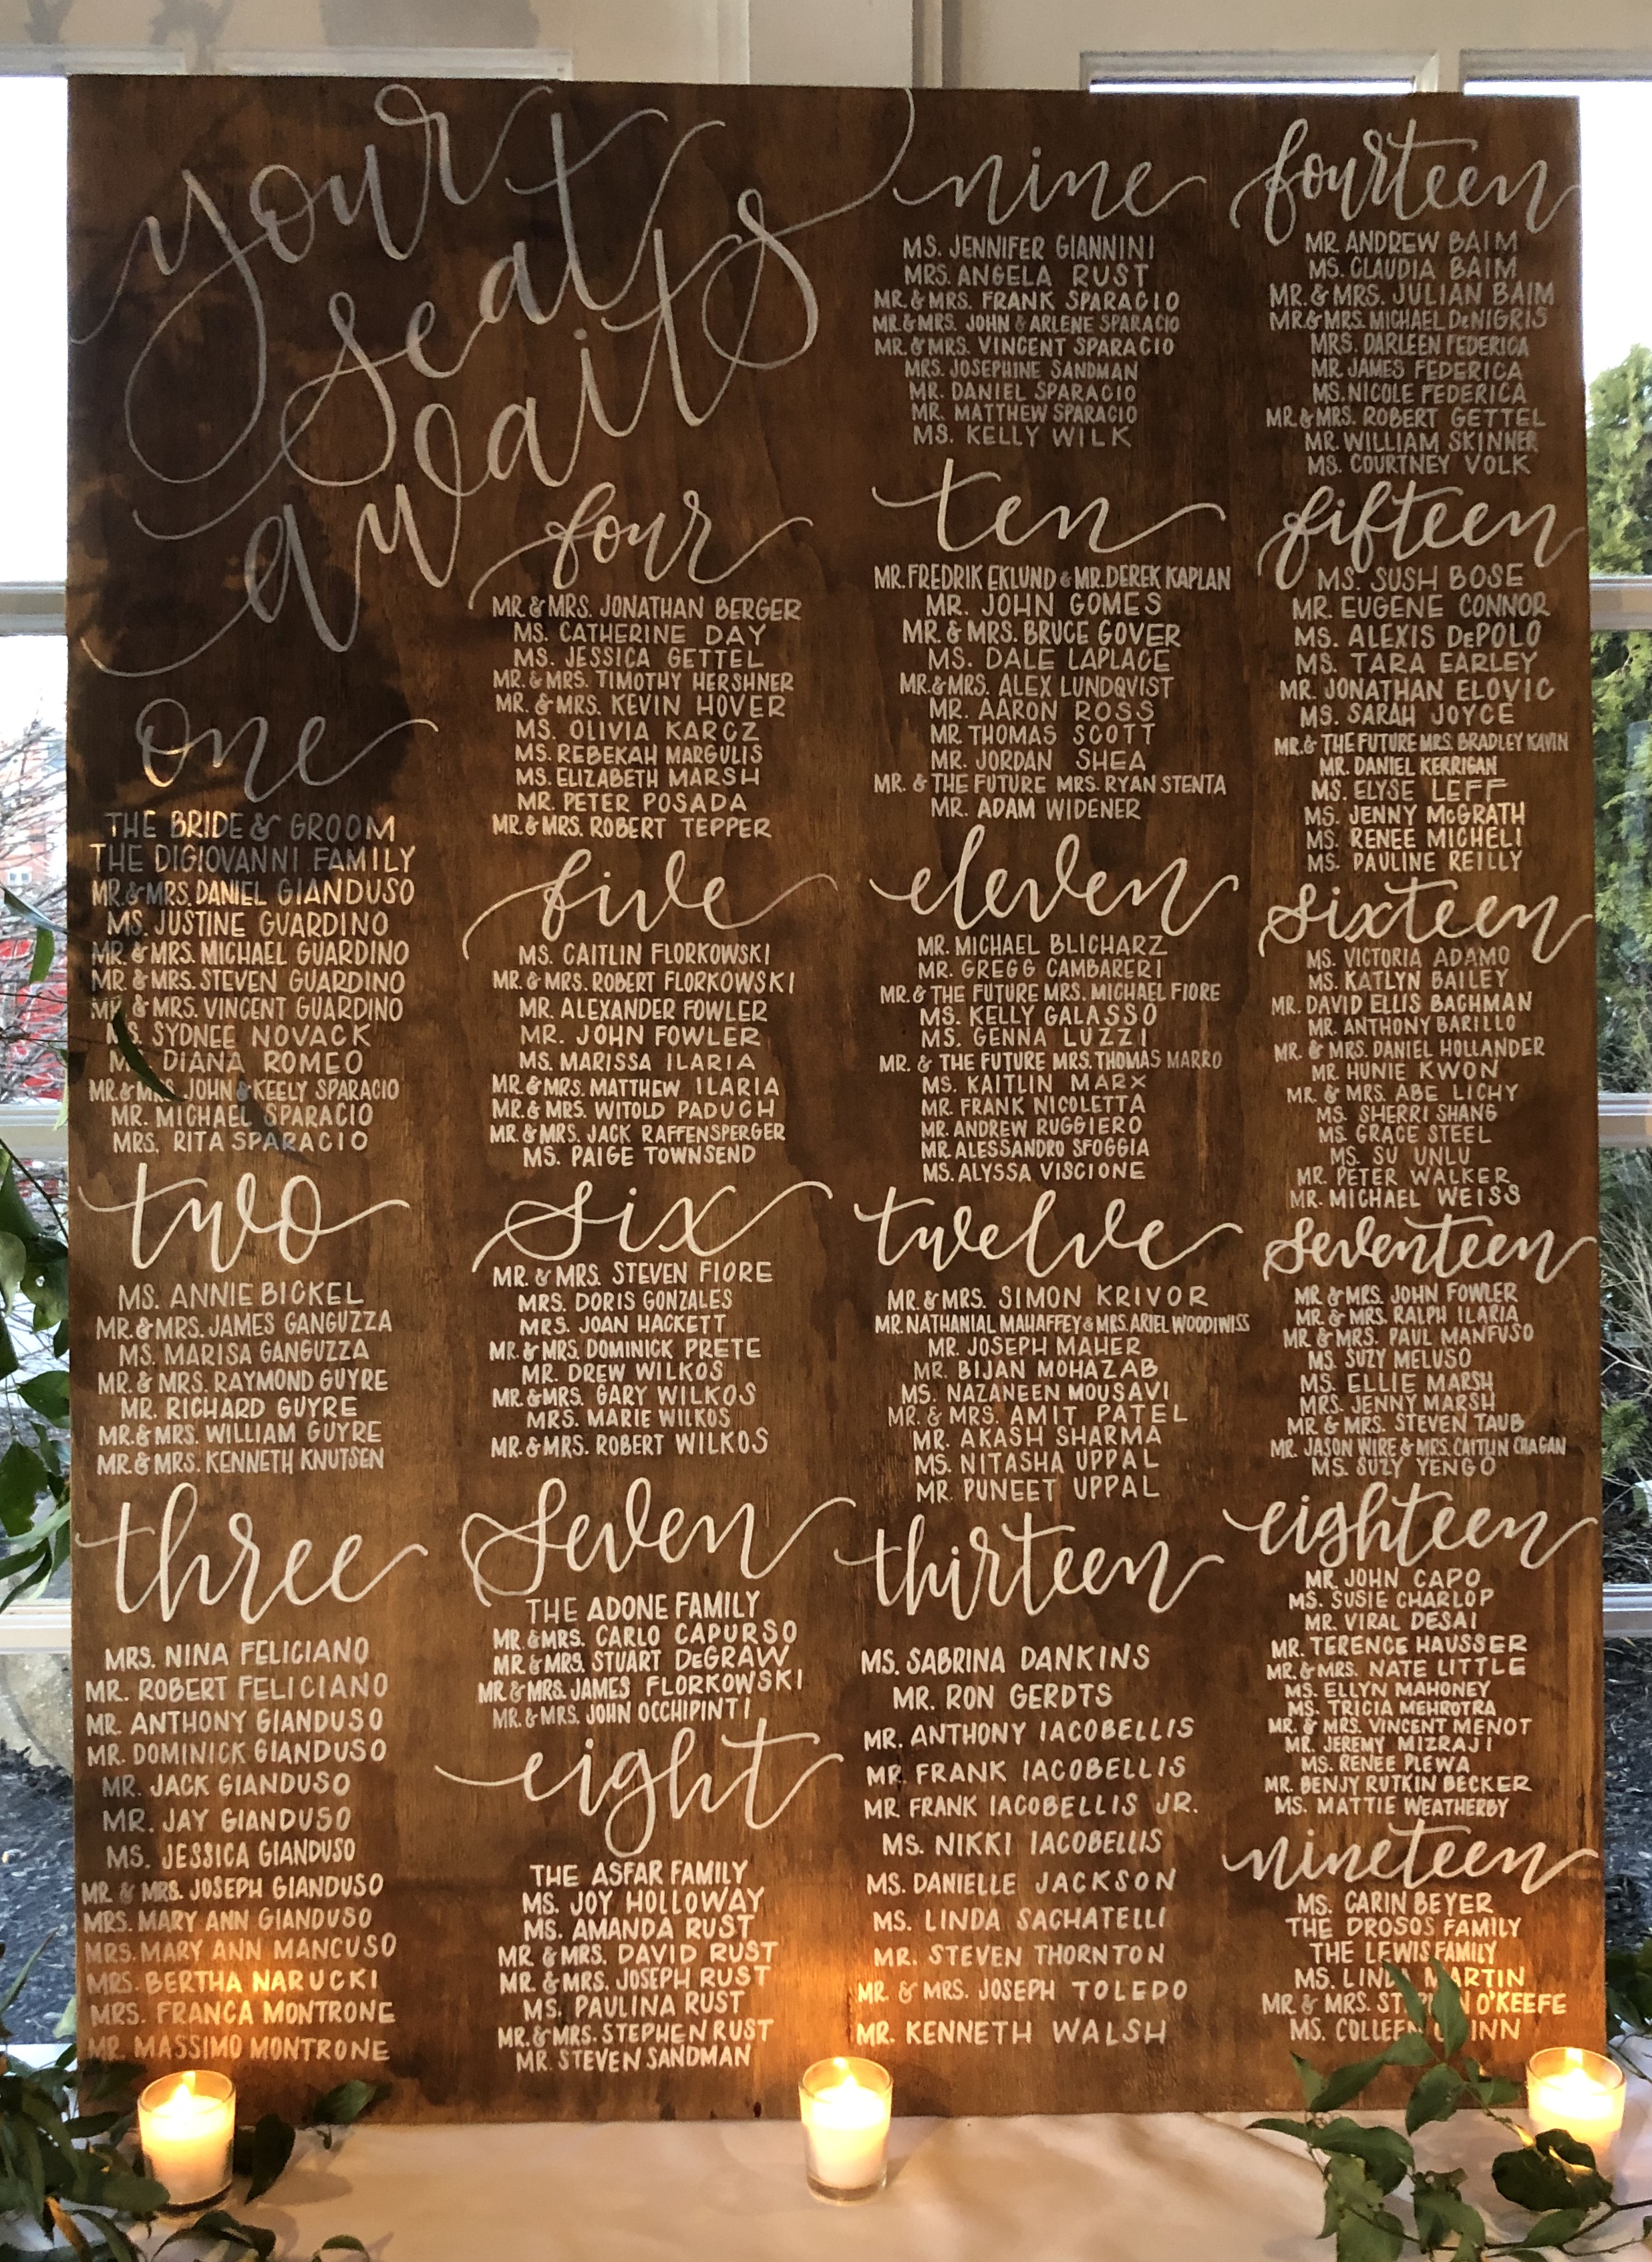 your
seat
awaits
one
THE BRIDE & GROOM
THE DIGIOVANNI FAMILY
MR. & MRS. DANIEL GIANDUSO
MS. JUSTINE GUARDINO
MR. & MRS. MICHAEL GUARDINO
MR. & MRS. STEVEN GUARDINO
MR. & MRS. VINCENT GUARDINO
MS. SYDNEE NOVACK
DIANA ROMEO
MR. & MRS. JOHN & KEELY SPARACIO
MR. MICHAEL SPARACIO
MRS. RITA SPARACIO
two
MS. ANNIE BICKEL
MR. & MRS. JAMES GANGUZZA
MS. MARISA GANGUZZA
MR. & MRS. RAYMOND GUYRE
MR. RICHARD GUYRE
MR. & MRS. WILLIAM GUYRE
MR. & MRS. KENNETH KNUTSEN
three
MRS. NINA FELICIANO
MR. ROBERT FELICIANO
MR. ANTHONY GIANDUSO
MR. DOMINICK GIANDUSO
MR. JACK GIANDUSO
MR. JAY GIANDUSO
MS. JESSICA GIANDUSO
MR. & MRS. JOSEPH GIANDUSO
MRS. MARY ANN GIANDUSO
MRS. MARY ANN MANCUSO
MRS. BERTHA NARUCKI
MRS. FRANCA MONTRONE
MR. MASSIMO MONTRONE
four
MR. & MRS. JONATHAN BERGER
MS. CATHERINE DAY
MS. JESSICA GETTEL
MR. & MRS. TIMOTHY HERSHNER
MR. & MRS. KEVIN HOVER
MS. OLIVIA KARCZ
MS. REBEKAH MARGULIS
MS. ELIZABETH MARSH
MR. PETER POSADA
MR. & MRS. ROBERT TEPPER
five
MS. CAITLIN FLORKOWSKI
MR. & MRS. ROBERT FLORKOWSKI
MR. ALEXANDER FOWLER
MR. JOHN FOWLER
MS. MARISSA ILARIA
MR. & MRS. MATTHEW ILARIA
MR. & MRS. WITOLD PADUCH
MR. & MRS. JACK RAFFENSPERGER
MS. PAIGE TOWNSEND
six
MR. & MRS. STEVEN FIORE
MRS. DORIS GONZALES
MRS. JOAN HACKETT
MR. & MRS. DOMINICK PRETE
MR. DREW WILKOS
MR. & MRS. GARY WILKOS
MRS. MARIE WILKOS
MR. & MRS. ROBERT WILKOS
seven
THE ADONE FAMILY
MR. & MRS. CARLO CAPURSO
MR. & MRS. STUART DeGRAW
MR. & MRS. JAMES FLORKOWSKI
MR. & MRS. JOHN OCCHIPINTI
eight
THE ASFAR FAMILY
MS. JOY HOLLOWAY
MS. AMANDA RUST
MR. & MRS. DAVID RUST
MR. & MRS. JOSEPH RUST
MS. PAULINA RUST
MR. & MRS. STEPHEN RUST
MR. STEVEN SANDMAN
nine
MS. JENNIFER GIANNINI
MRS. ANGELA RUST
MR. & MRS. FRANK SPARACIO
MR. & MRS. JOHN & ARLENE SPARACIO
MR. & MRS. VINCENT SPARACIO
MRS. JOSEPHINE SANDMAN
MR. DANIEL SPARACIO
MR. MATTHEW SPARACIO
MS. KELLY WILK
ten
MR. FREDRIK EKLUND & MR. DEREK KAPLAN
MR. JOHN GOMES
MR. & MRS. BRUCE GOVER
MS. DALE LAPLACE
MR. & MRS. ALEX LUNDQVIST
MR. AARON ROSS
MR. THOMAS SCOTT
MR. JORDAN SHEA
MR. & THE FUTURE MRS. RYAN STENTA
MR. ADAM WIDENER
eleven
MR. MICHAEL BLICHARZ
MR. GREGG CAMBARERI
MR. & THE FUTURE MRS. MICHAEL FIORE
MS. KELLY GALASSO
MS. GENNA LUZZI
MR. & THE FUTURE MRS. THOMAS MARRO
MS. KAITLIN MARX
MR. FRANK NICOLETTA
MR. ANDREW RUGGIERO
MR. ALESSANDRO SFOGGIA
MS. ALYSSA VISCIONE
twelve
MR. & MRS. SIMON KRIVOR
MR. NATHANIAL MAHAFFEY & MRS. ARIEL WOODIWISS
MR. JOSEPH MAHER
MR. BIJAN MOHAZAB
MS. NAZANEEN MOUSAVI
MR. & MRS. AMIT PATEL
MR. AKASH SHARMA
MS. NITASHA UPPAL
MR. PUNEET UPPAL
thirteen
MS. SABRINA DANKINS
MR. RON GERDTS
MR. ANTHONY IACOBELLIS
MR. FRANK IACOBELLIS
MR. FRANK IACOBELLIS JR.
MS. NIKKI IACOBELLIS
MS. DANIELLE JACKSON
MS. LINDA SACHATELLI
MR. STEVEN THORNTON
MR. & MRS. JOSEPH TOLEDO
MR. KENNETH WALSH
fourteen
MR. ANDREW BAIM
MS. CLAUDIA BAIM
MR. & MRS. JULIAN BAIM
MR. & MRS. MICHAEL DeNIGRIS
MRS. DARLEEN FEDERICA
MR. JAMES FEDERICA
MS. NICOLE FEDERICA
MR. & MRS. ROBERT GETTEL
MR. WILLIAM SKINNER
MS. COURTNEY VOLK
fifteen
MS. SUSH BOSE
MR. EUGENE CONNOR
MS. ALEXIS DePOLO
MS. TARA EARLEY
MR. JONATHAN ELOVIC
MS. SARAH JOYCE
MR. & THE FUTURE MRS. BRADLEY KAVIN
MR. DANIEL KERRIGAN
MS. ELYSE LEFF
MS. JENNY McGRATH
MS. RENEE MICHELI
MS. PAULINE REILLY
sixteen
MS. VICTORIA ADAMO
MS. KATLYN BAILEY
MR. DAVID ELLIS BACHMAN
MR. ANTHONY BARILLO
MR. & MRS. DANIEL HOLLANDER
MR. HUNIE KWON
MR. & MRS. ABE LICHY
MS. SHERRI SHANG
MS. GRACE STEEL
MS. SU UNLU
MR. PETER WALKER
MR. MICHAEL WEISS
seventeen
MR. & MRS. JOHN FOWLER
MR. & MRS. RALPH ILARIA
MR. & MRS. PAUL MANFUSO
MS. SUZY MELUSO
MS. ELLIE MARSH
MRS. JENNY MARSH
MR. & MRS. STEVEN TAUB
MR. JASON WIRE & MRS. CAITLIN CHAGAN
MS. SUZY YENGO
eighteen
MR. JOHN CAPO
MS. SUSIE CHARLOP
MR. VIRAL DESAI
MR. TERENCE HAUSSER
MR. & MRS. NATE LITTLE
MS. ELLYN MAHONEY
MS. TRICIA MEHROTRA
MR. & MRS. VINCENT MENOT
MR. JEREMY MIZRAJI
MS. RENEE PLEWA
MR. BENJY RUTKIN BECKER
MS. MATTIE WEATHERBY
nineteen
MS. CARIN BEYER
THE DROSOS FAMILY
THE LEWIS FAMILY
MS. LINDA MARTIN
MR. & MRS. O'KEEFE
MS. COLLEEN